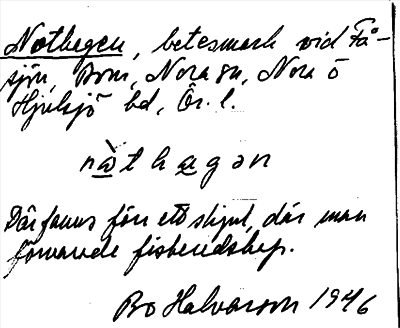 Nothagen, betesmark vid Få-
sjön, Born, Nora sn, Nora o
Hjulsjö bd, Ör. l.
nòthagen
Där fanns förr ett skjul, där man
förvarade fiskeredskap.
Bo Halvarson 1946